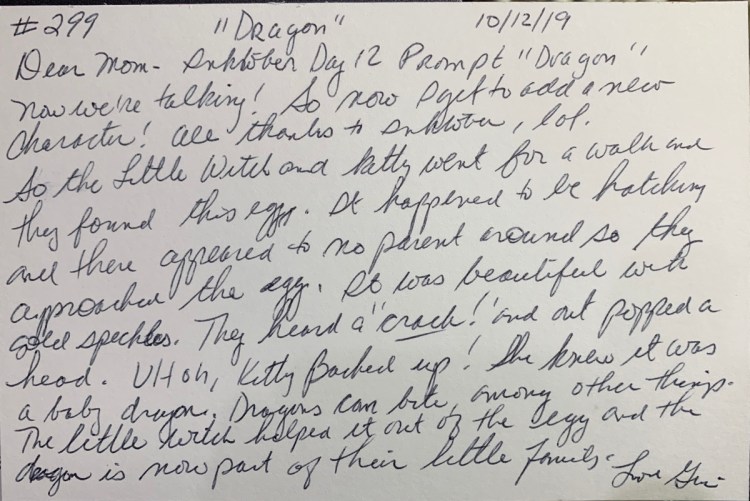 #299 "Dragon" 10/12/19
Dear Mom- Inktober Day 12 Prompt "Dragon"
Now we're talking! So now I get to add a new
Character! All thanks to Inktober, lol.
So the Little Witch and Kitty went for a walk and
they found this egg. It happened to be hatching
and there appeared to no parent around so they
approached the egg. It was beautiful with
gold speckles. They heard a "crack!" and out popped a
head. Uh oh, Kitty Backed up! She knew it was
a baby dragon. Dragons can bite, among other things.
The little witch helped it out of the egg and the
dragon is now part of their little family. Love